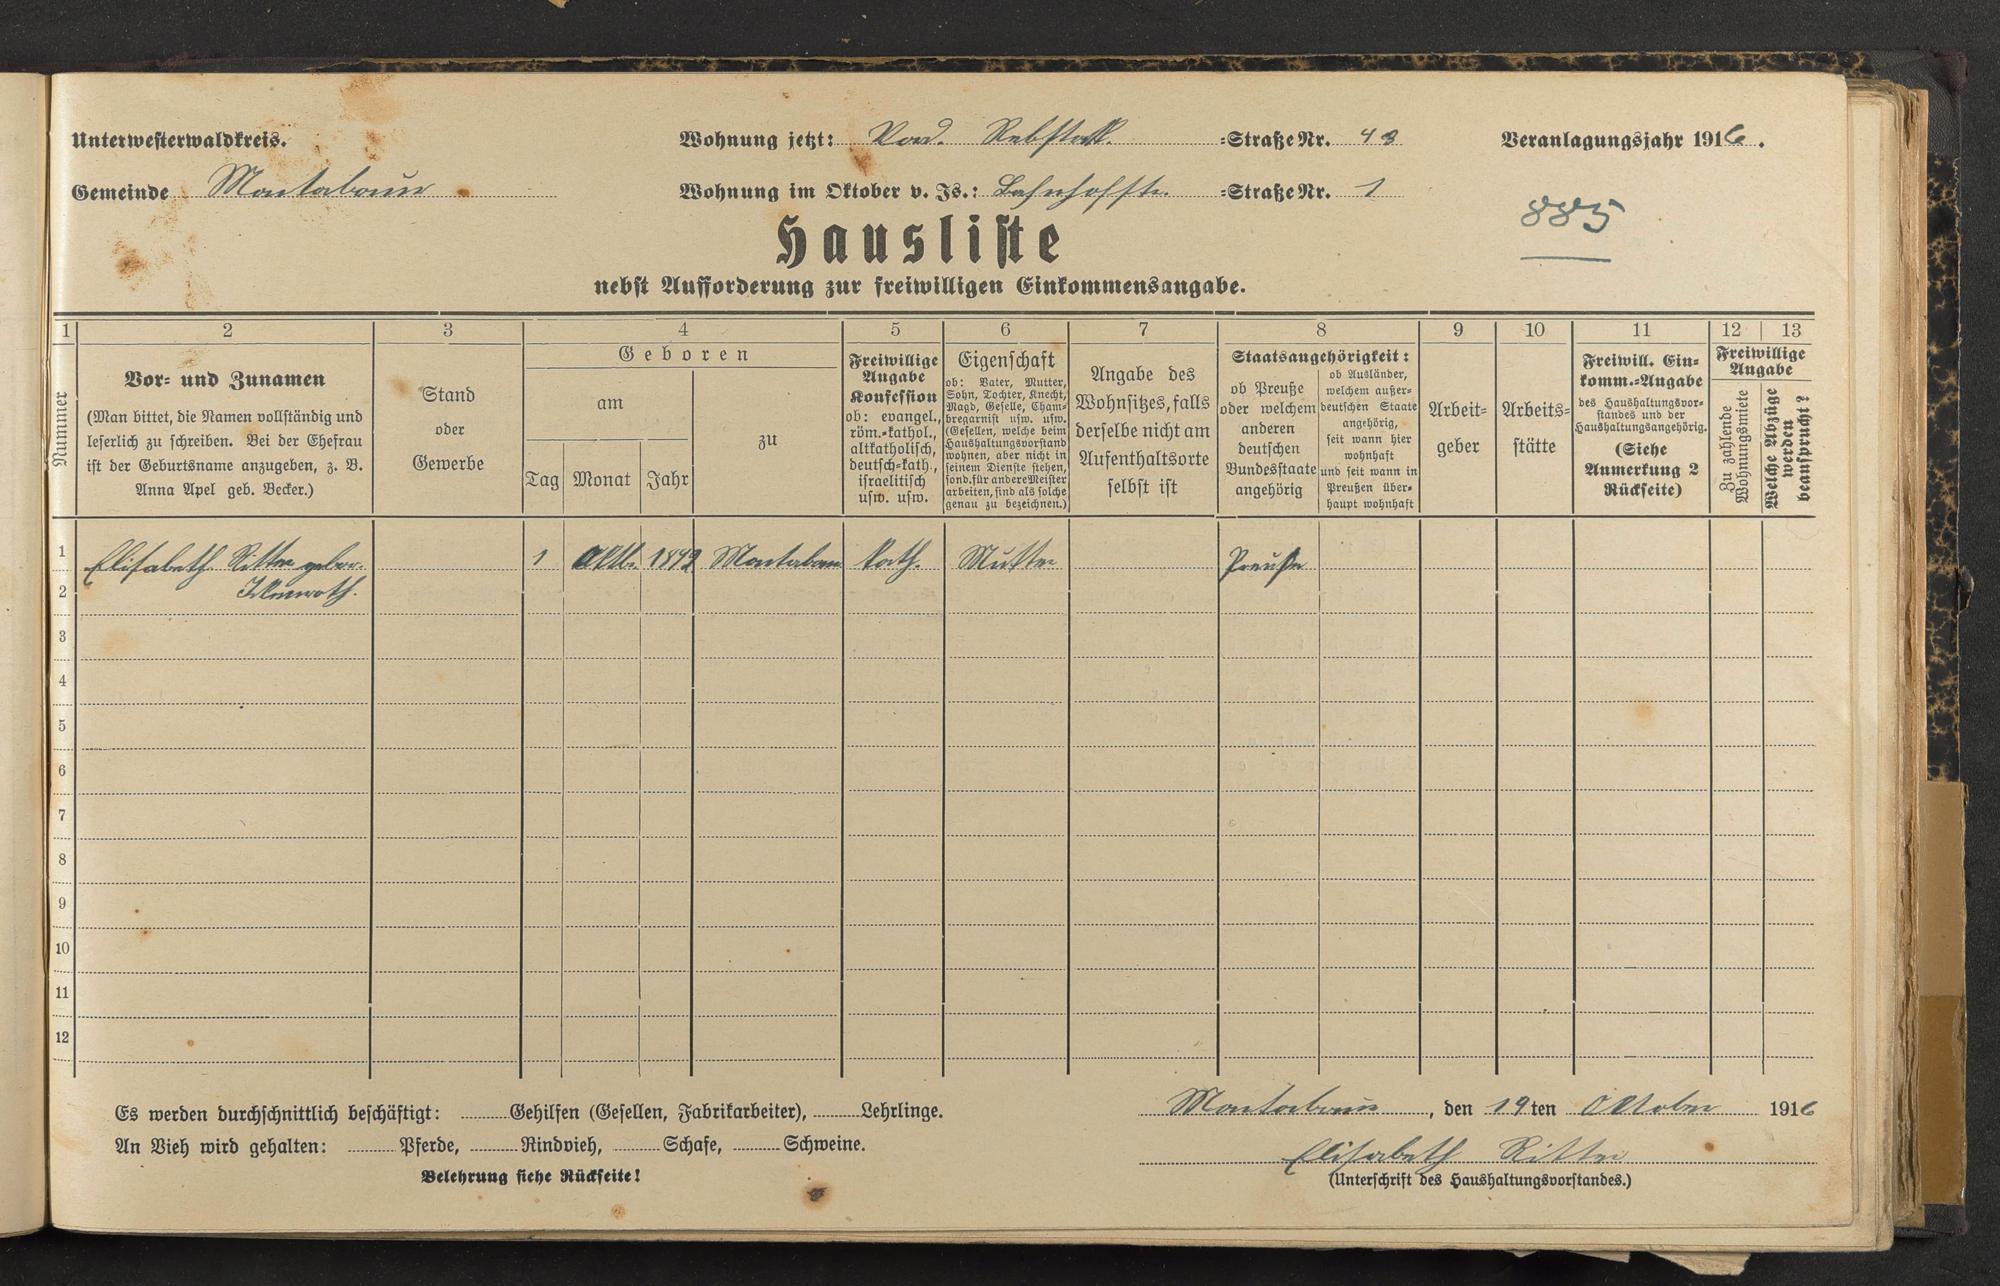 Unterwesterwaldkreis.
Gemeinde Montabaur
Wohnung jetzt: Vord. Rebstock. =Straße Nr. 43
Wohnung im Oktober v. Js.: Bahnhofstr. =Straße Nr. 1
Veranlagungsjahr 1916.
885
Hausliste
nebst Aufforderung zur freiwilligen Einkommensangabe.
1 2 3 4 5 6 7 8 9 10 11 12 13
Nummer
Vor- und Zunamen
(Man bittet, die Namen vollständig und
leserlich zu schreiben. Bei der Ehefrau
ist der Geburtsname anzugeben, z. B.
Anna Apel geb. Becker.)
Stand
oder
Gewerbe
Geboren
am
Tag Monat Jahr
zu
Freiwillige
Angabe
Konfession
ob: evangel.,
röm.-kathol.,
altkatholisch,
deutsch-kath.,
israelitisch
usw. usw.
Eigenschaft
ob: Vater, Mutter,
Sohn, Tochter, Knecht,
Magd, Geselle, Cham-
bregarnist usw. usw.
(Gesellen, welche beim
Haushaltungsvorstand
wohnen, aber nicht in
seinem Dienste stehen,
sond. für andere Meister
arbeiten, sind als solche
genau zu bezeichnen.)
Angabe des
Wohnsitzes, falls
derselbe nicht am
Aufenthaltsorte
selbst ist
Staatsangehörigkeit:
ob Preuße
oder welchem
anderen
deutschen
Bundesstaate
angehörig
ob Ausländer,
welchem außer-
deutschen Staate
angehörig,
seit wann hier
wohnhaft
und seit wann in
Preußen über-
haupt wohnhaft
Arbeit-
geber
Arbeits-
stätte
Freiwill. Ein-
komm.-Angabe
des Haushaltungsvor-
standes und der
Haushaltungsangehörig.
(Siehe
Anmerkung 2
Rückseite)
Freiwillige
Angabe
Zu zahlende
Wohnungsmiete
Welche Abzüge
werden
beansprucht?
1 Elisabeth Ritter gebor. 1 Oktb. 1842 Montabaur kath. Mutter Preuße
2
3
4
5
6
7
8
9
10
11
12
Es werden durchschnittlich beschäftigt: Gehilfen (Gesellen, Fabrikarbeiter), Lehrlinge.
An Vieh wird gehalten: Pferde, Rindvieh, Schafe, Schweine.
Belehrung siehe Rückseite!
Montabaur, den 19ten Oktober 1916
Elisabeth Ritter
(Unterschrift des Haushaltungsvorstandes.)